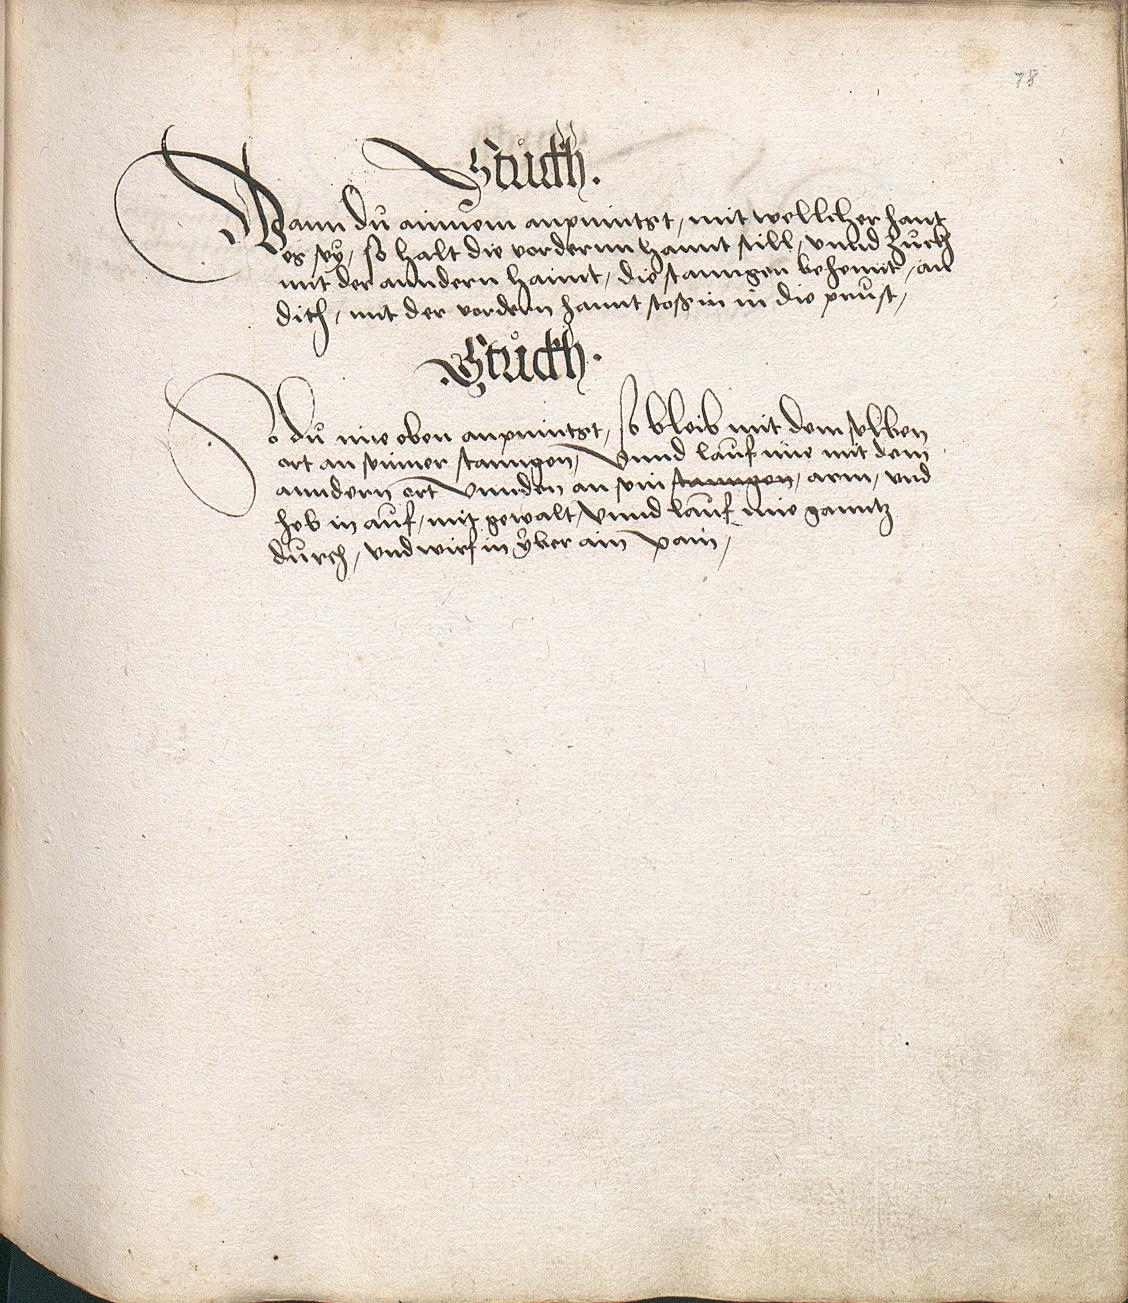 78
Stuckh.
Wann dů ainnem anpinntst, mit wellicher hant
es sey, so halt die vordernn hannt still, vnnd zuckh
mit der anndern hannt, die stanngen behennt, an
dich, mit der vordern hannt stoss in in die prust,
Stuckh.
So dů ime oben anpinntst, so bleib mit dem selben
ort an seinner stanngen, Vnnd lauf ime mit dem
anndern ort Vnnden an sein stanngen, arm, vnd
heb in auf, mit gewalt, Vnnd lauf ime ganntz
durch, vnd wirf in yber ain pain,